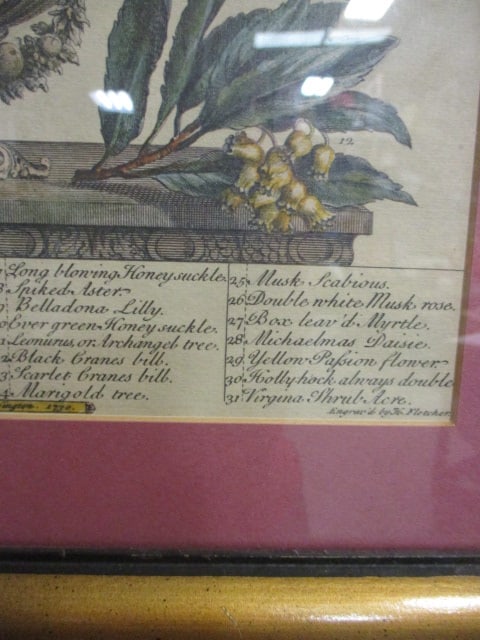 12.
Long blowing Honeysuckle.
Spiked Aster.
Belladona Lilly.
Ever green Honey suckle.
Leonurus, or Archangel tree.
Black Cranes bill.
Scarlet Cranes bill.
Marigold tree.
1730.
25 Musk Scabious.
26 Double white Musk rose.
27 Box leav'd Myrtle.
28 Michaelmas Daisie.
29 Yellow Passion flower
30 Hollyhock always double
31 Virgina Shrub Acre.
Engrav'd by H. Fletcher.